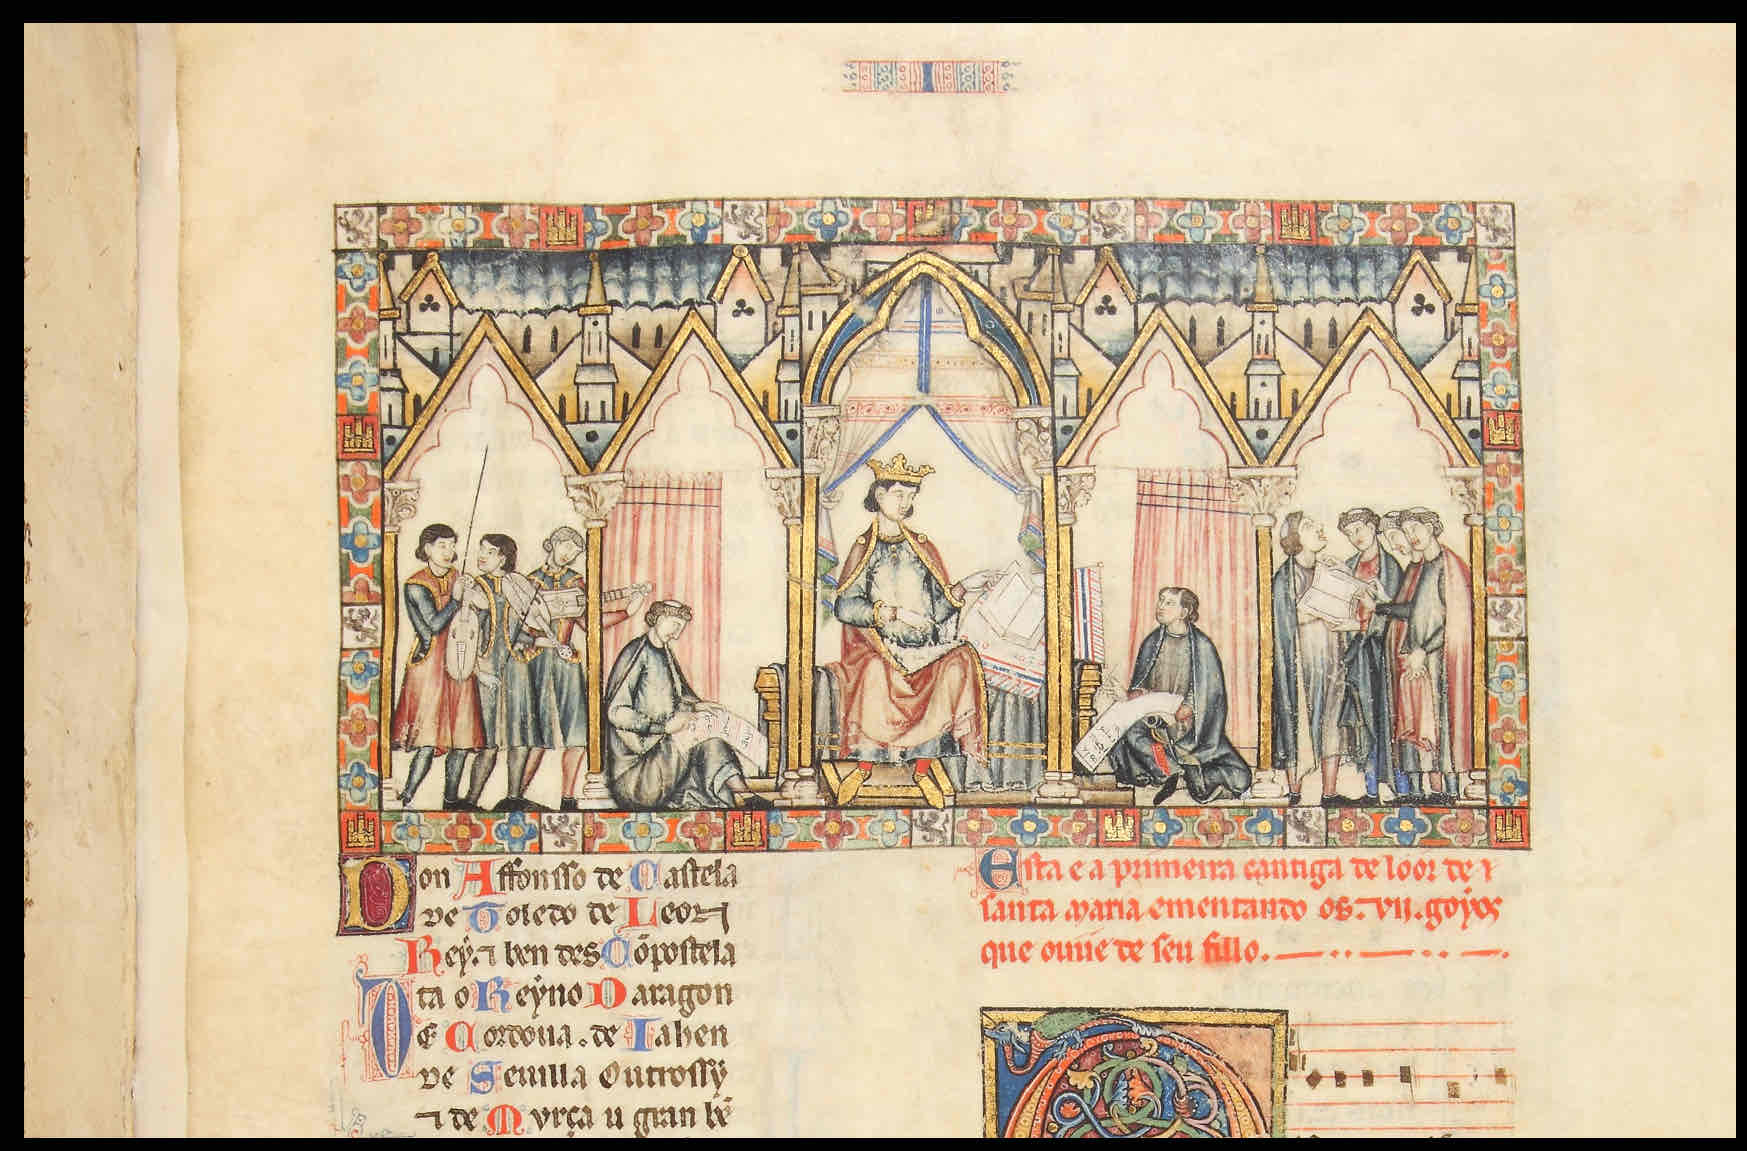 I
Don Affonsso de Castela
de Toledo de Leon
Rey ⁊ ben des Cõpostela
ta o Reyno Daragon
De Cordoua. de Iahen
de Seuilla outrossy
⁊ de Murça u gran bẽ
Esta e a primeira cantiga de loor de
santa maria ementando os .vii. goyos
que ouue de seu fillo.